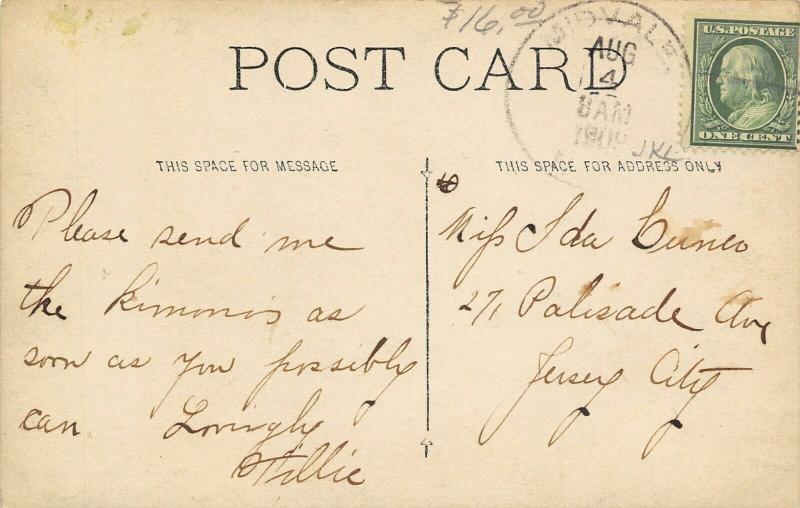 $16.00
POST CARD
MIDVALE,
AUG
4
8 AM
1909
JKL
U.S. POSTAGE
ONE CENT
THIS SPACE FOR MESSAGE
THIS SPACE FOR ADDRESS ONLY
Please send me
the kimonos as
soon as you possibly
can. Lovingly
Willie
Miss Ida Cuneo
271 Palisade Ave
Jersey City